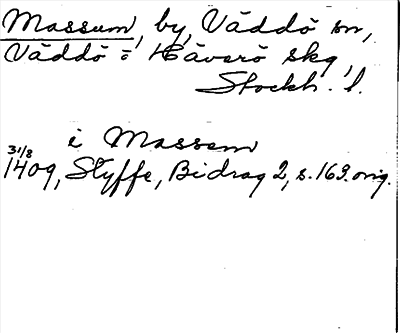 Massum, by, Väddö sn,
Väddö o Häverö skg,
Stockh. l.
i Massem
31/8
1409, Styffe, Bidrag 2, s. 169. orig.